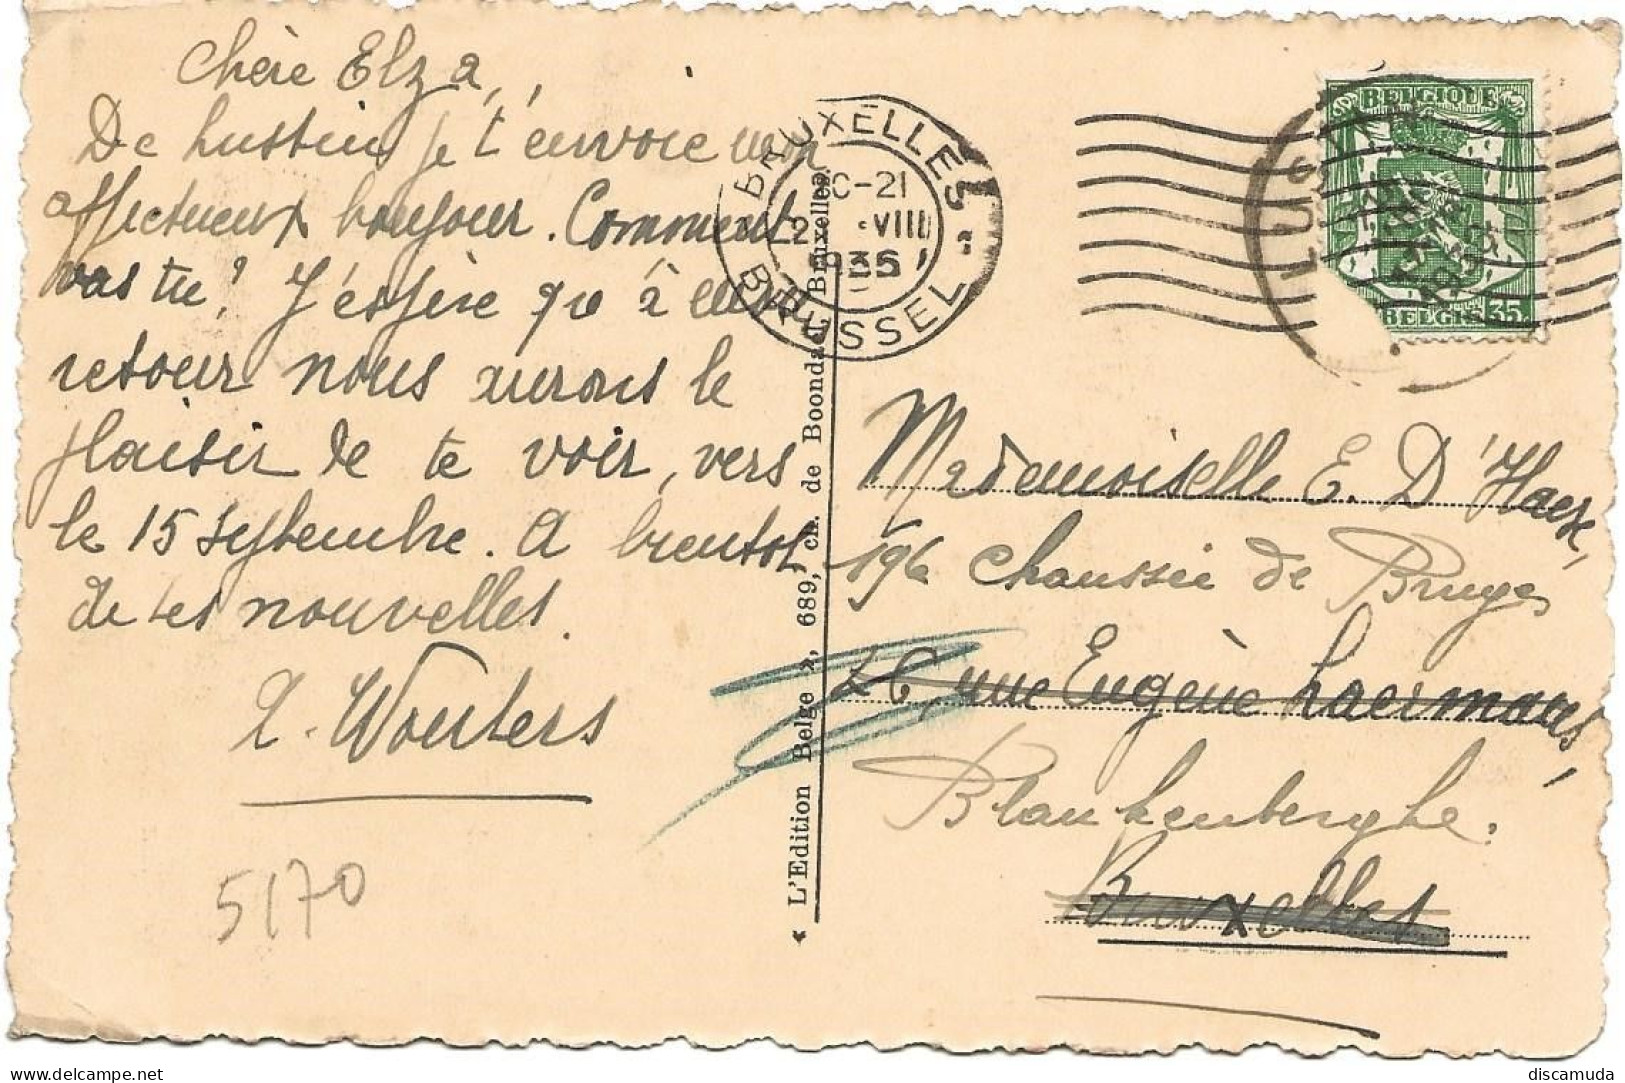 Chère Elza,
De Lustin je t'envoie mon
affectueux bonjour. Comment
vas tu? J'espère qu'à
retour nous aurons le
plaisir de te voir, vers
le 15 septembre. A bientot
de tes nouvelles.
L. Wouters
5170
L'Edition Belge », 689, ch. de Boondael, Bruxelles
BRUXELLES
C-21
VIII
1935
BRUSSEL
LUSTIN
BELGIQUE
BELGIE 35
Mademoiselle E. D'Haese,
196 Chaussée de Bruges
26, rue Eugène Laermans,
Blankenberghe.
Bruxelles
delcampe.net
discamuda